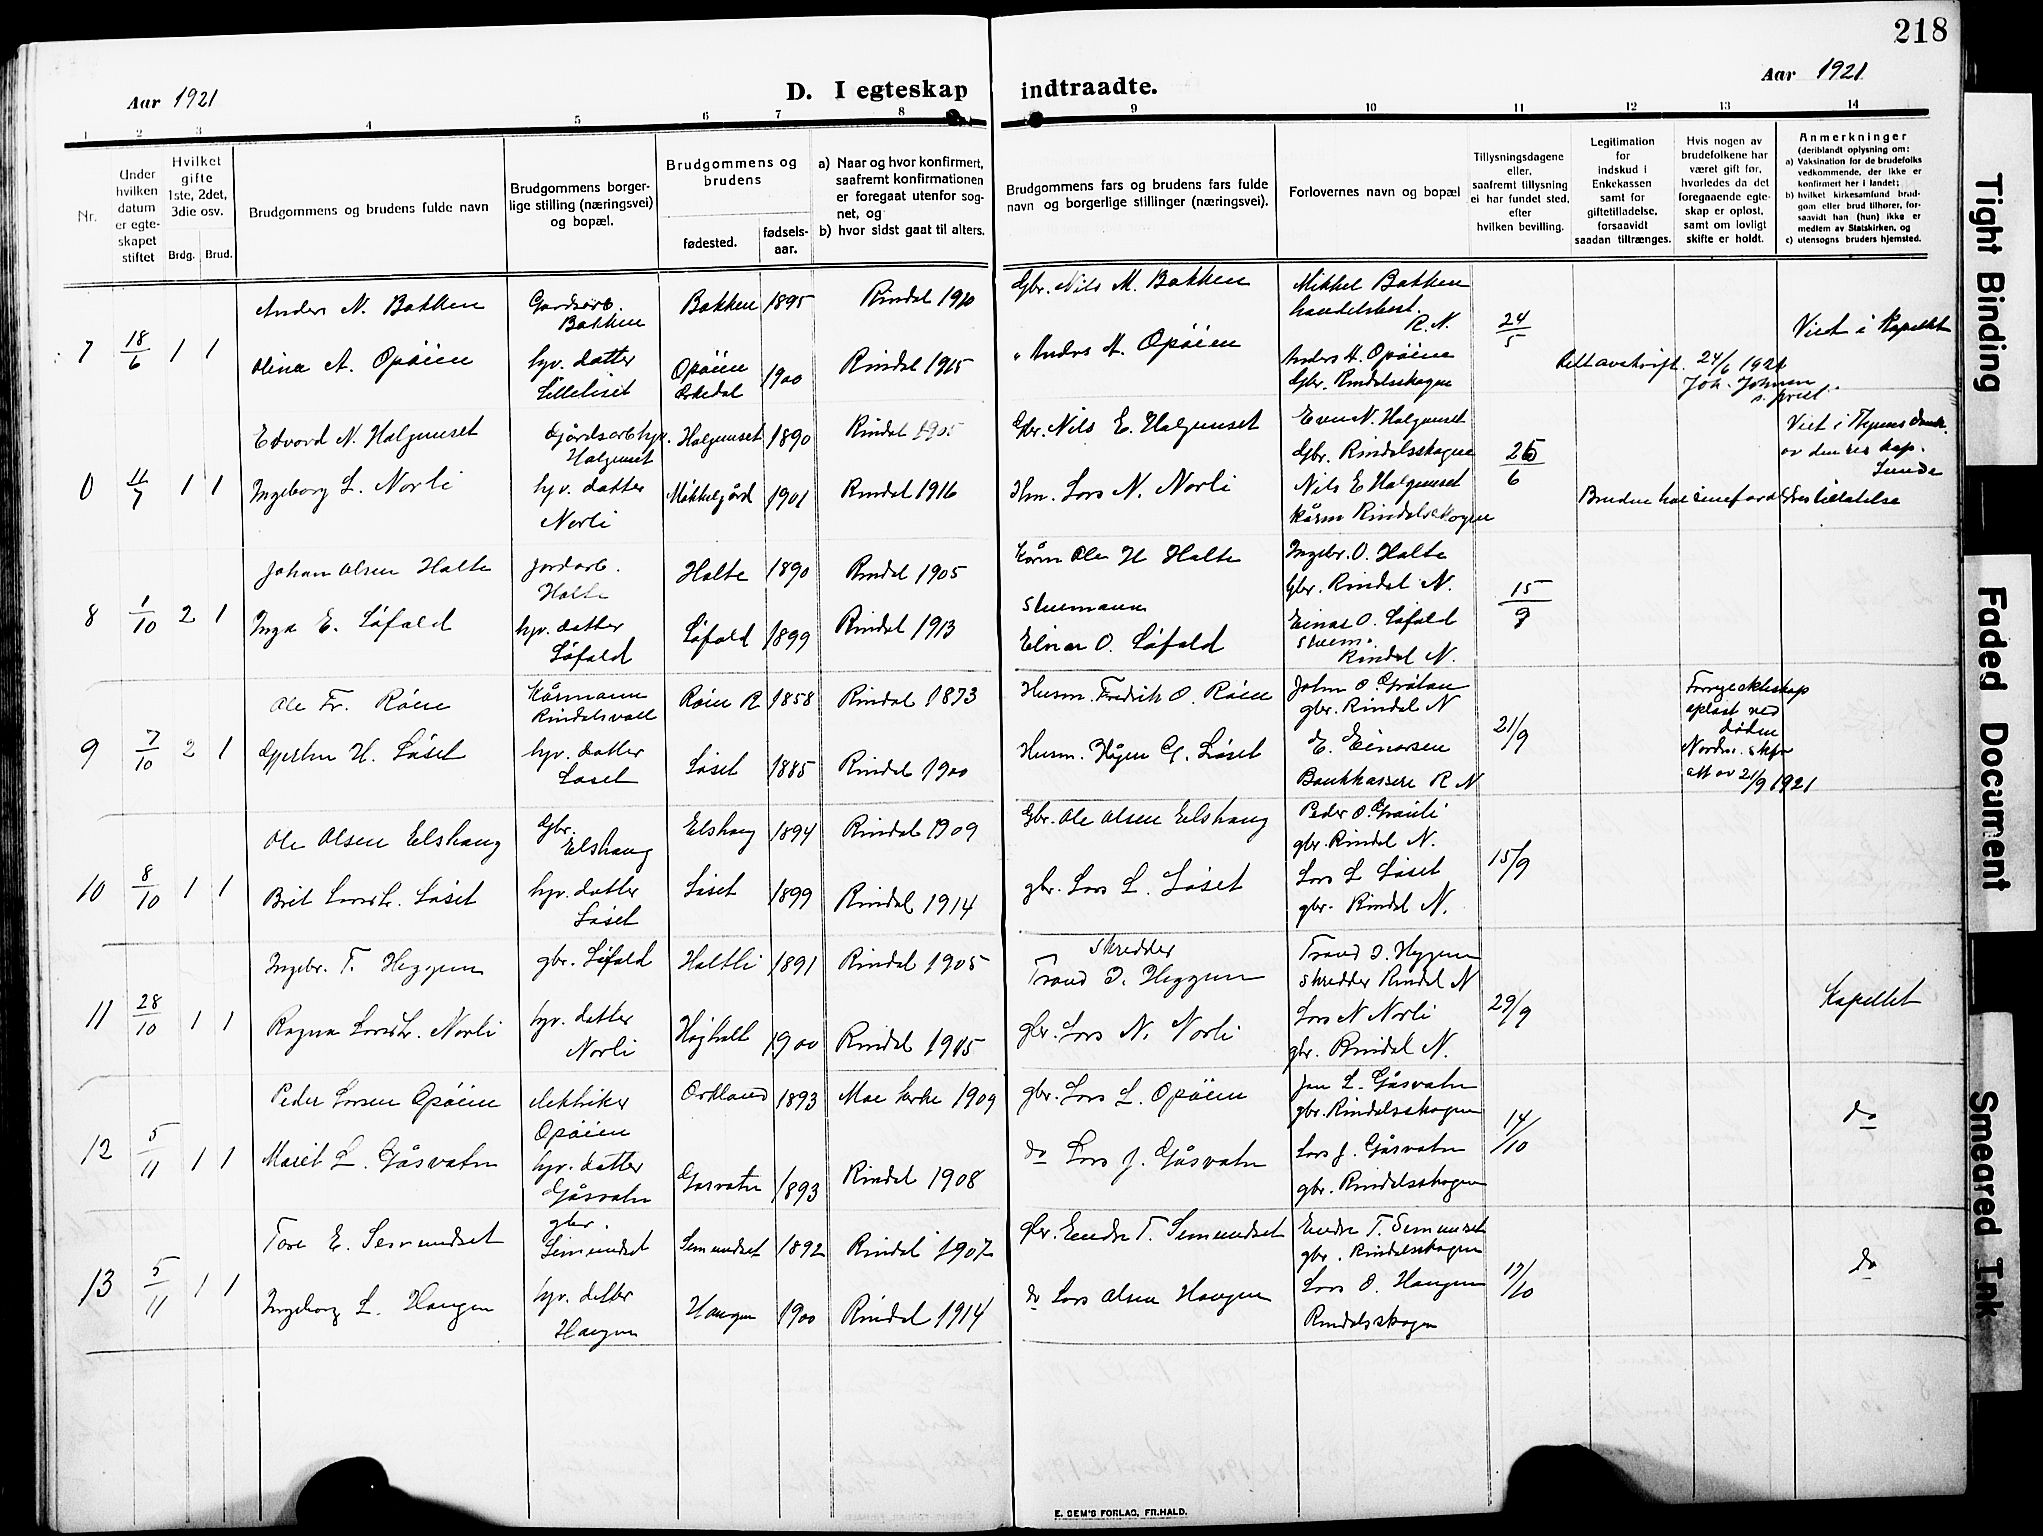 218
Aar 1921
D. I egteskap indtraadte.
Aar 1921
1 2 3 4 5 6 7 8 9 10 11 12 13 14
Nr.
Under hvilken datum er egteskapet stiftet
Hvilket gifte 1ste, 2det, 3die osv.
Brdg. Brud.
Brudgommens og brudens fulde navn
Brudgommens borgerlige stilling (næringsvei) og bopæl.
Brudgommens og brudens
fødested.
fødselsaar.
a) Naar og hvor konfirmert, saafremt konfirmationen er foregaat utenfor sognet, og
b) hvor sidst gaat til alters.
Brudgommens fars og brudens fars fulde navn og borgerlige stillinger (næringsvei).
Forlovernes navn og bopæl
Tillysningsdagene eller, saafremt tillysning ei har fundet sted, efter hvilken bevilling.
Legitimation for indskud i Enkekassen samt for giftetilladelse, forsaavidt saadan tiltrænges.
Hvis nogen av brudefolkene har været gift før, hvorledes da det foregaaende egteskap er opløst, samt om lovligt skifte er holdt.
Anmerkninger
(deriblandt oplysning om:
a) Vaksination for de brudefolks vedkommende, der ikke er konfirmert her i landet;
b) hvilket kirkesamfund brudgom eller brud tilhører, forsaavidt han (hun) ikke er medlem av Statskirken, og
c) utensogns bruders hjemsted.
7 18/6 1 1
Anders N. Bakken Gardsarb. Bakken Bakken 1895 Rindal 1910 Gbr. Nils M. Bakken Mikkel Bakken handelsbest. R. N. 24/5 Viet i Kapellet
Olina A. Opøien hjv. datter Lilleliset Opøien Orkedal 1900 Rindal 1915 " Anders A. Opøien Anders A. Opøien Gbr. Rindalsskogen
Rett avskrift. 24/6 1921 Joh. Johnsen s. prest.
0 11/7 1 1
Edvard N. Halgunset Gårdsarb Halgunset Halgunset 1890 Rindal 1905 Gbr. Nils E. Halgunset Even N. Halgunset Gbr. Rindalsskogen 26/6 Viet i
av den res kap.
Ingeborg L. Norli hjv. datter Norli Mikkelgård 1901 Rindal 1916 Hm. Lars N. Norli Nils E Halgunset Kårm Rindalsskogen
Bruden har sine foreldres tillatelse
8 1/10 2 1
Johan Olsen Halte Jordarb. Halte Halte 1890 Rindal 1905 Kårm Ole H Halte Ingebr. O. Halte Gbr. Rindal N. 15/9
Inga E. Løfald hjv. datter Løfald Løfald 1899 Rindal 1913 Stuemann Einar O. Løfald Einar O. Løfald stuem. Rindal N.
9 7/10 2 1
Ole Fr. Røen Kårmann Rindalsvoll Røen R 1858 Rindal 1873 Husm. Fredrik O. Røen John O. Grøtan gbr. Rindal N 21/9 Forrige ekteskap opløst ved døden Nordm. skfr att av 21/9 1921
Gjertru H. Løset hjv. datter Løset Løset 1885 Rindal 1900 Husm. Hågen G. Løset E. Einarsen Bankkasserer R N
10 8/10 1 1
Ole Olsen Elshaug Gbr. Elshaug Elshaug 1894 Rindal 1909 Gbr. Ole Olsen Elshaug Peder O. Grønli gbr. Rindal N. 15/9
Brit Larsdtr. Løset hjv. datter Løset Løset 1899 Rindal 1914 gbr. Lars L. Løset Lars L Løset gbr. Rindal N.
11 28/10 1 1
Ingebr. T. Heggem gbr. Løfald Haltli 1891 Rindal 1905 Skredder Trond I. Heggem Trond I. Heggem skredder Rindal N 29/9 Kapellet
Ragna Larsdtr. Norli hjv. datter Norli Høghalt 1900 Rindal 1915 gbr. Lars N. Norli Lars N Norli gbr. Rindal N.
12 5/11 1 1
Peder Larsen Opøien elektriker Opøien Orkland 1893 Moe kirke 1909 gbr. Lars L. Opøien Jon L. Gåsvatn gbr. Rindalsskogen 14/10 do
Marit L. Gåsvatn hjv. datter Gåsvatn Gåsvatn 1893 Rindal 1908 do Lars J. Gåsvatn Lars J. Gåsvatn gbr. Rindalsskogen
13 5/11 1 1
Tore E. Semundset gbr. Semundset Semundset 1892 Rindal 1907 Gbr. Endre T. Semundset Endre T. Semunset gbr. Rindalsskogen 17/10 do
Ingeborg L. Haugen hjv. datter Haugen Haugen 1900 Rindal 1914 do Lars Olsen Haugen Lars O. Haugen Rindalsskogen
E. SEM'S FORLAG, FR.HALD.
Tight Binding
Faded Document
Smeared Ink